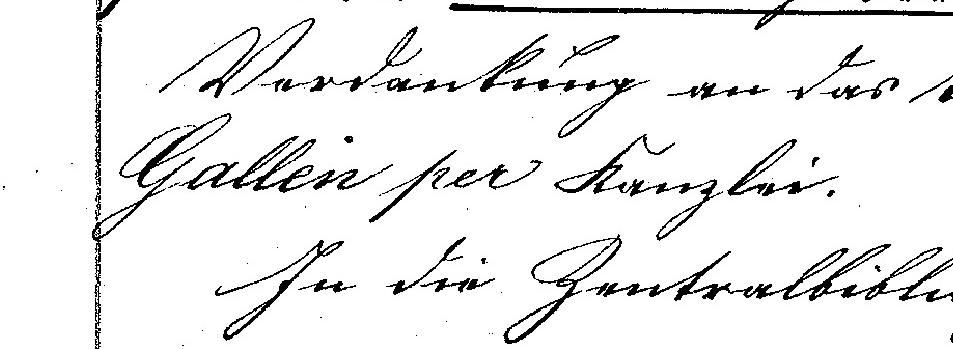 Verdankung an das
Gallen per Kanzlei.
In die Zentralbibli